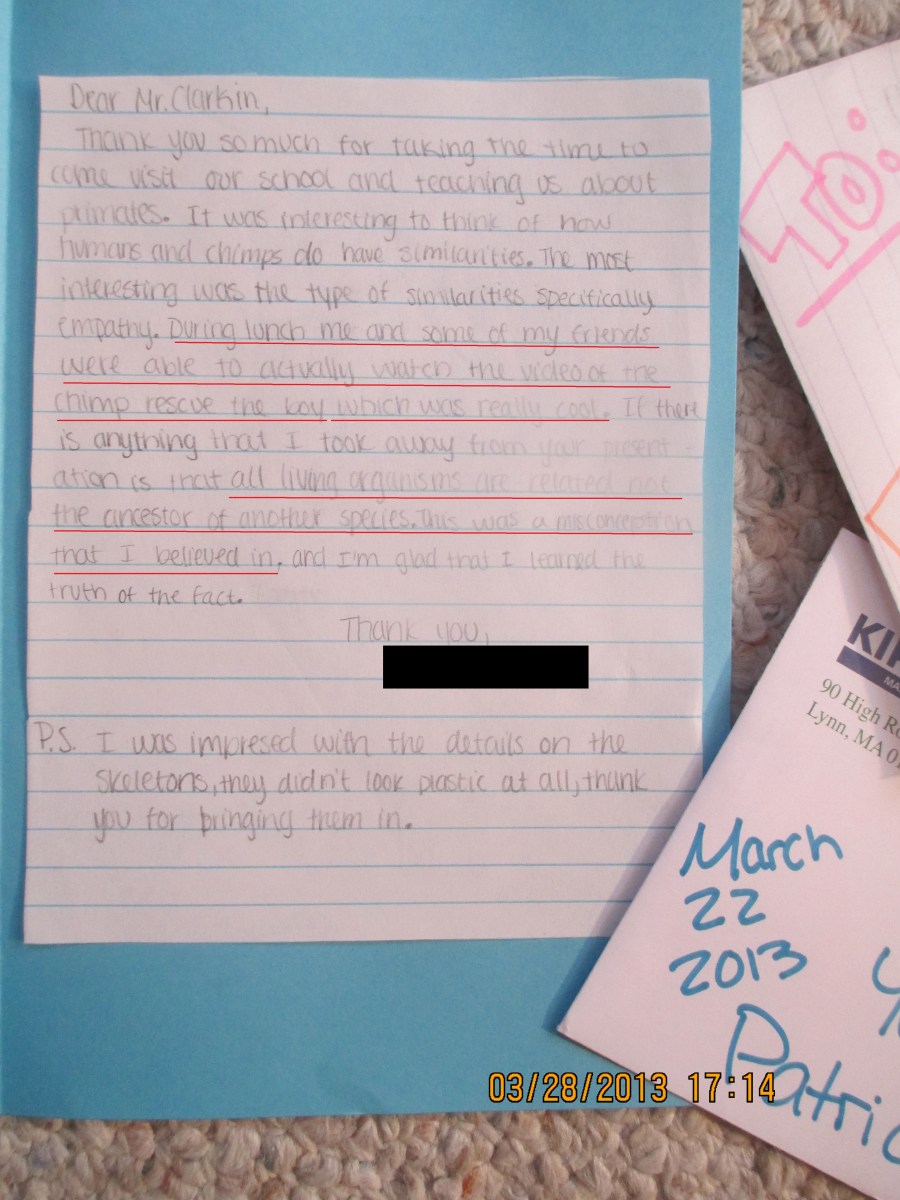 Dear Mr. Clarkin,
Thank you so much for taking the time to
come visit our school and teaching us about
primates. It was interesting to think of how
humans and chimps do have similarities. The most
interesting was the type of similarities specifically
empathy. During lunch me and some of my friends
were able to actually watch the video of the
chimp rescue the boy which was really cool. If there
is anything that I took away from your present-
ation is that all living organisms are related not
the ancestor of another species. This was a misconception
that I believed in, and I'm glad that I learned the
truth of the fact.
Thank you,
P.S. I was impresed with the details on the
skeletons, they didn't look plastic at all, thank
you for bringing them in.
TO:
90 High
Lynn, MA
March
22
2013
03/28/2013 17:14